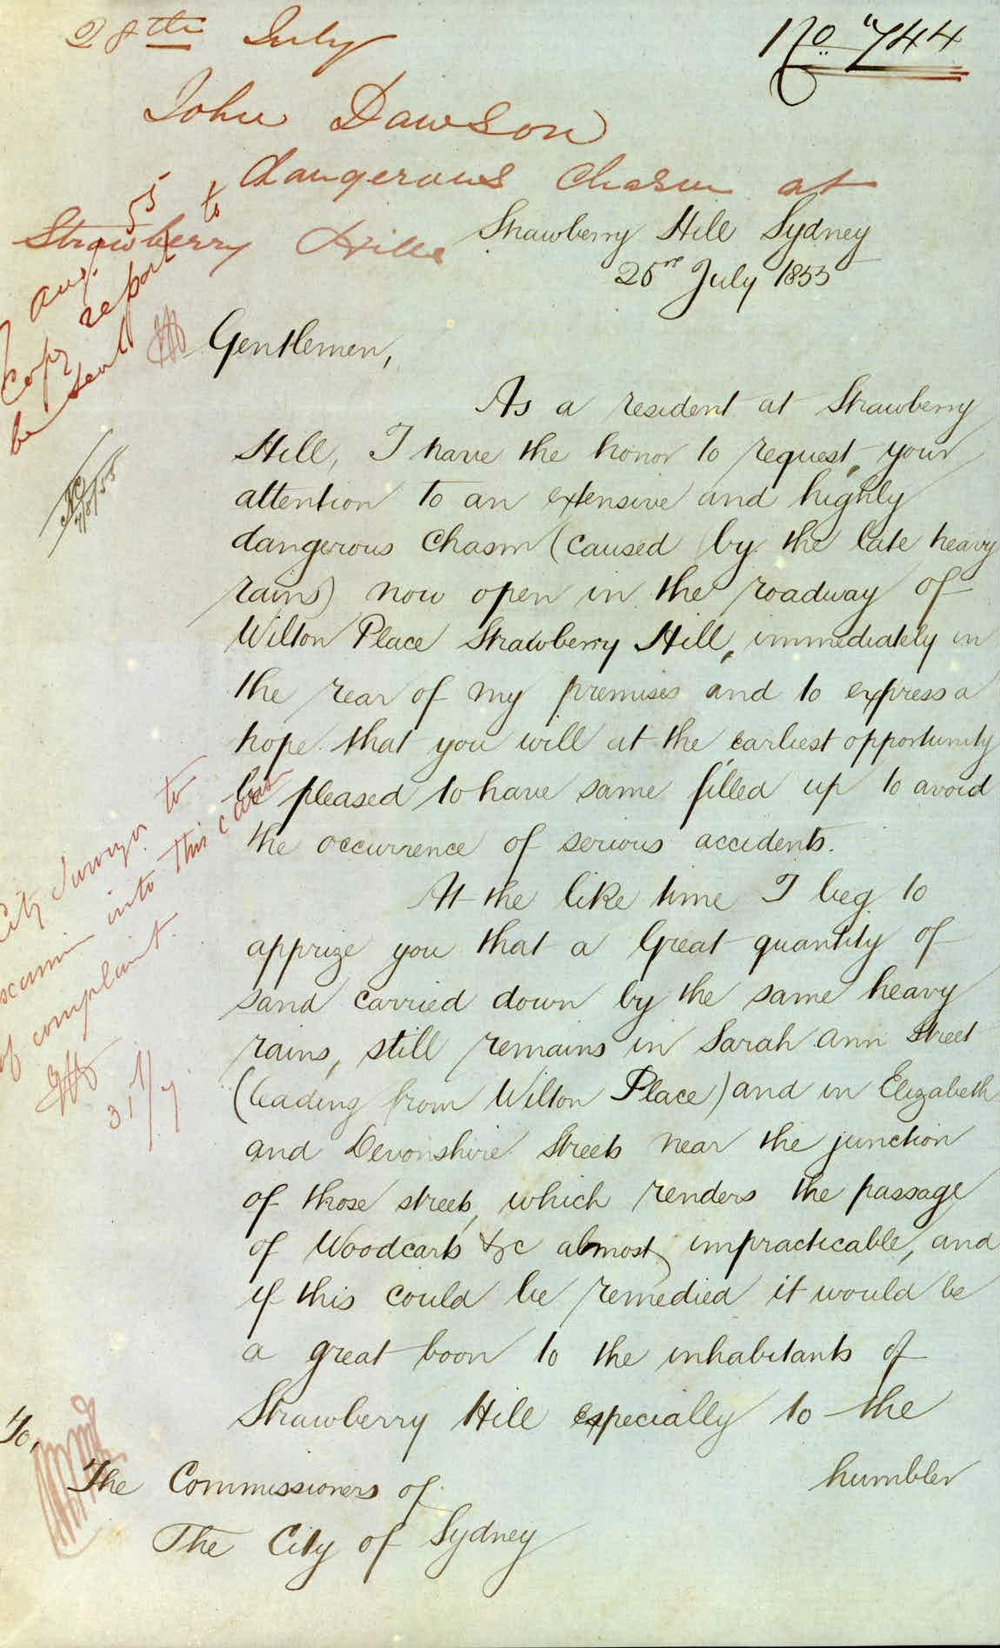 28th July
No 744
John Dawson
dangerous Chasm at
Strawberry Hills
Strawberry Hill Sydney
July 1855
7 Aug. 55
Copy report to
be sent
Gentlemen,
As a resident at Strawberry
Hill, I have the honor to request, your
attention to an extensive and highly
dangerous Chasm (caused by the late heavy
rains) now open in the roadway of
Wilton Place Strawberry Hill, immediately in
the rear of my premises and to express a
hope that you will at the earliest opportunity
be pleased to have same filled up to avoid
the occurrence of serious accidents.
City Surveyor to
examine into this case
of complaint.
31/7
At the like time I beg to
apprize you that a Great quantity of
sand carried down by the same heavy
rains, still remains in Sarah Ann Street
(leading from Wilton Place) and in Elizabeth
and Devonshire Streets near the junction
of those streets, which renders the passage
of Woodcarts &c almost impracticable, and
if this could be remedied it would be
a great boon to the inhabitants of
Strawberry Hill especially to the
humbler
To,
The Commissioners of
The City of Sydney